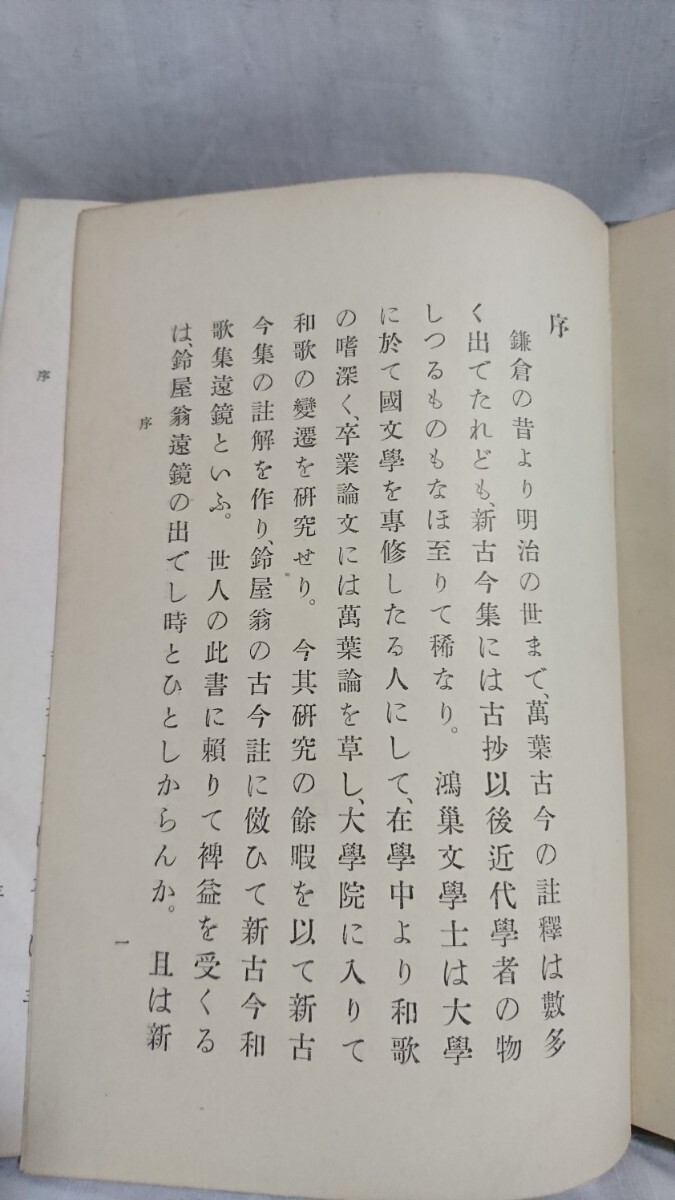 序
鎌倉の昔より明治の世まで、萬葉古今の註釋は數多
く出でたれども、新古今集には古抄以後近代學者の物
しつるものもなほ至りて稀なり。鴻巣文學士は大學
に於て國文學を專修したる人にして、在學中より和歌
の嗜深く、卒業論文には萬葉論を草し、大學院に入りて
和歌の變遷を研究せり。今其研究の餘暇を以て新古
今集の註解を作り、鈴屋翁の古今註に倣ひて新古今和
歌集遠鏡といふ。世人の此書に頼りて裨益を受くる
は、鈴屋翁遠鏡の出でし時とひとしからんか。且は新
序
一
序